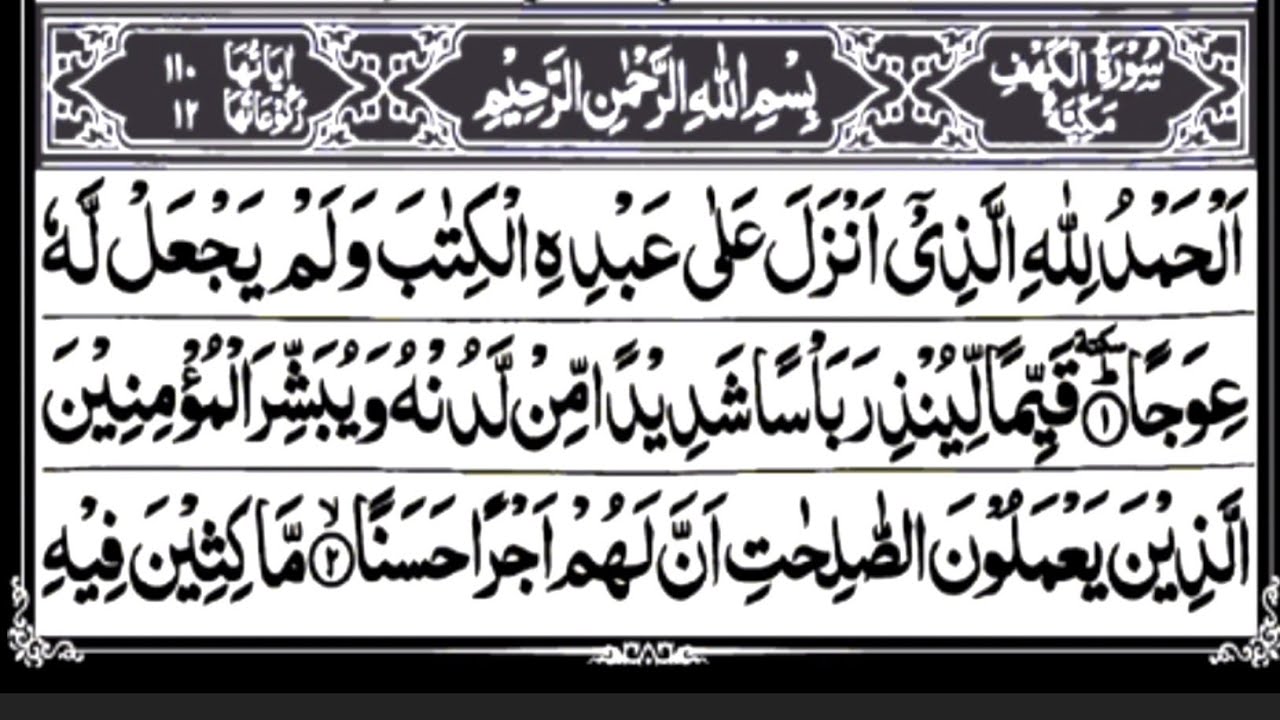 سُوْرَةُ الْكَهْفِ مَكِّيَّةٌ
بِسْمِ اللّٰهِ الرَّحْمٰنِ الرَّحِيْمِ
اٰيَاتُهَا ١١٠
رُكُوْعَاتُهَا ١٢
اَلْحَمْدُ لِلّٰهِ الَّذِیْۤ اَنْزَلَ عَلٰی عَبْدِهِ الْكِتٰبَ وَلَمْ یَجْعَلْ لَّهٗ
عِوَجًا ؕ سكتة ۝١ قَیِّمًا لِّیُنْذِرَ بَاْسًا شَدِیْدًا مِّنْ لَّدُنْهُ وَیُبَشِّرَ الْمُؤْمِنِیْنَ
الَّذِیْنَ یَعْمَلُوْنَ الصّٰلِحٰتِ اَنَّ لَهُمْ اَجْرًا حَسَنًا ۙ ۝٢ مَّاكِثِیْنَ فِیْهِ